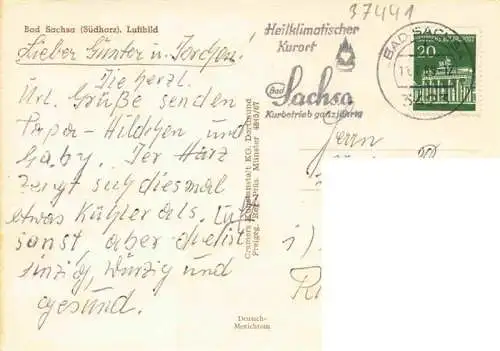 37441
Bad Sachsa (Südharz). Luftbild
Heilklimatischer
Kurort
Bad
Sachsa
Kurbetrieb ganzjährig
BAD SACHSA
20
Lieber Günter u.
Die herzl.
Url. Grüße senden
Papa - Hildchen und
Gaby. Der Harz
zeigt sich diesmal
etwas kühler als
sonst, aber die Luft ist
würzig und
gesund.
Cramers Kunstanstalt KG. Dortmund
Preigeg. Reg.-Präs. Münster
Deutsch-
Mexichrom
Herrn